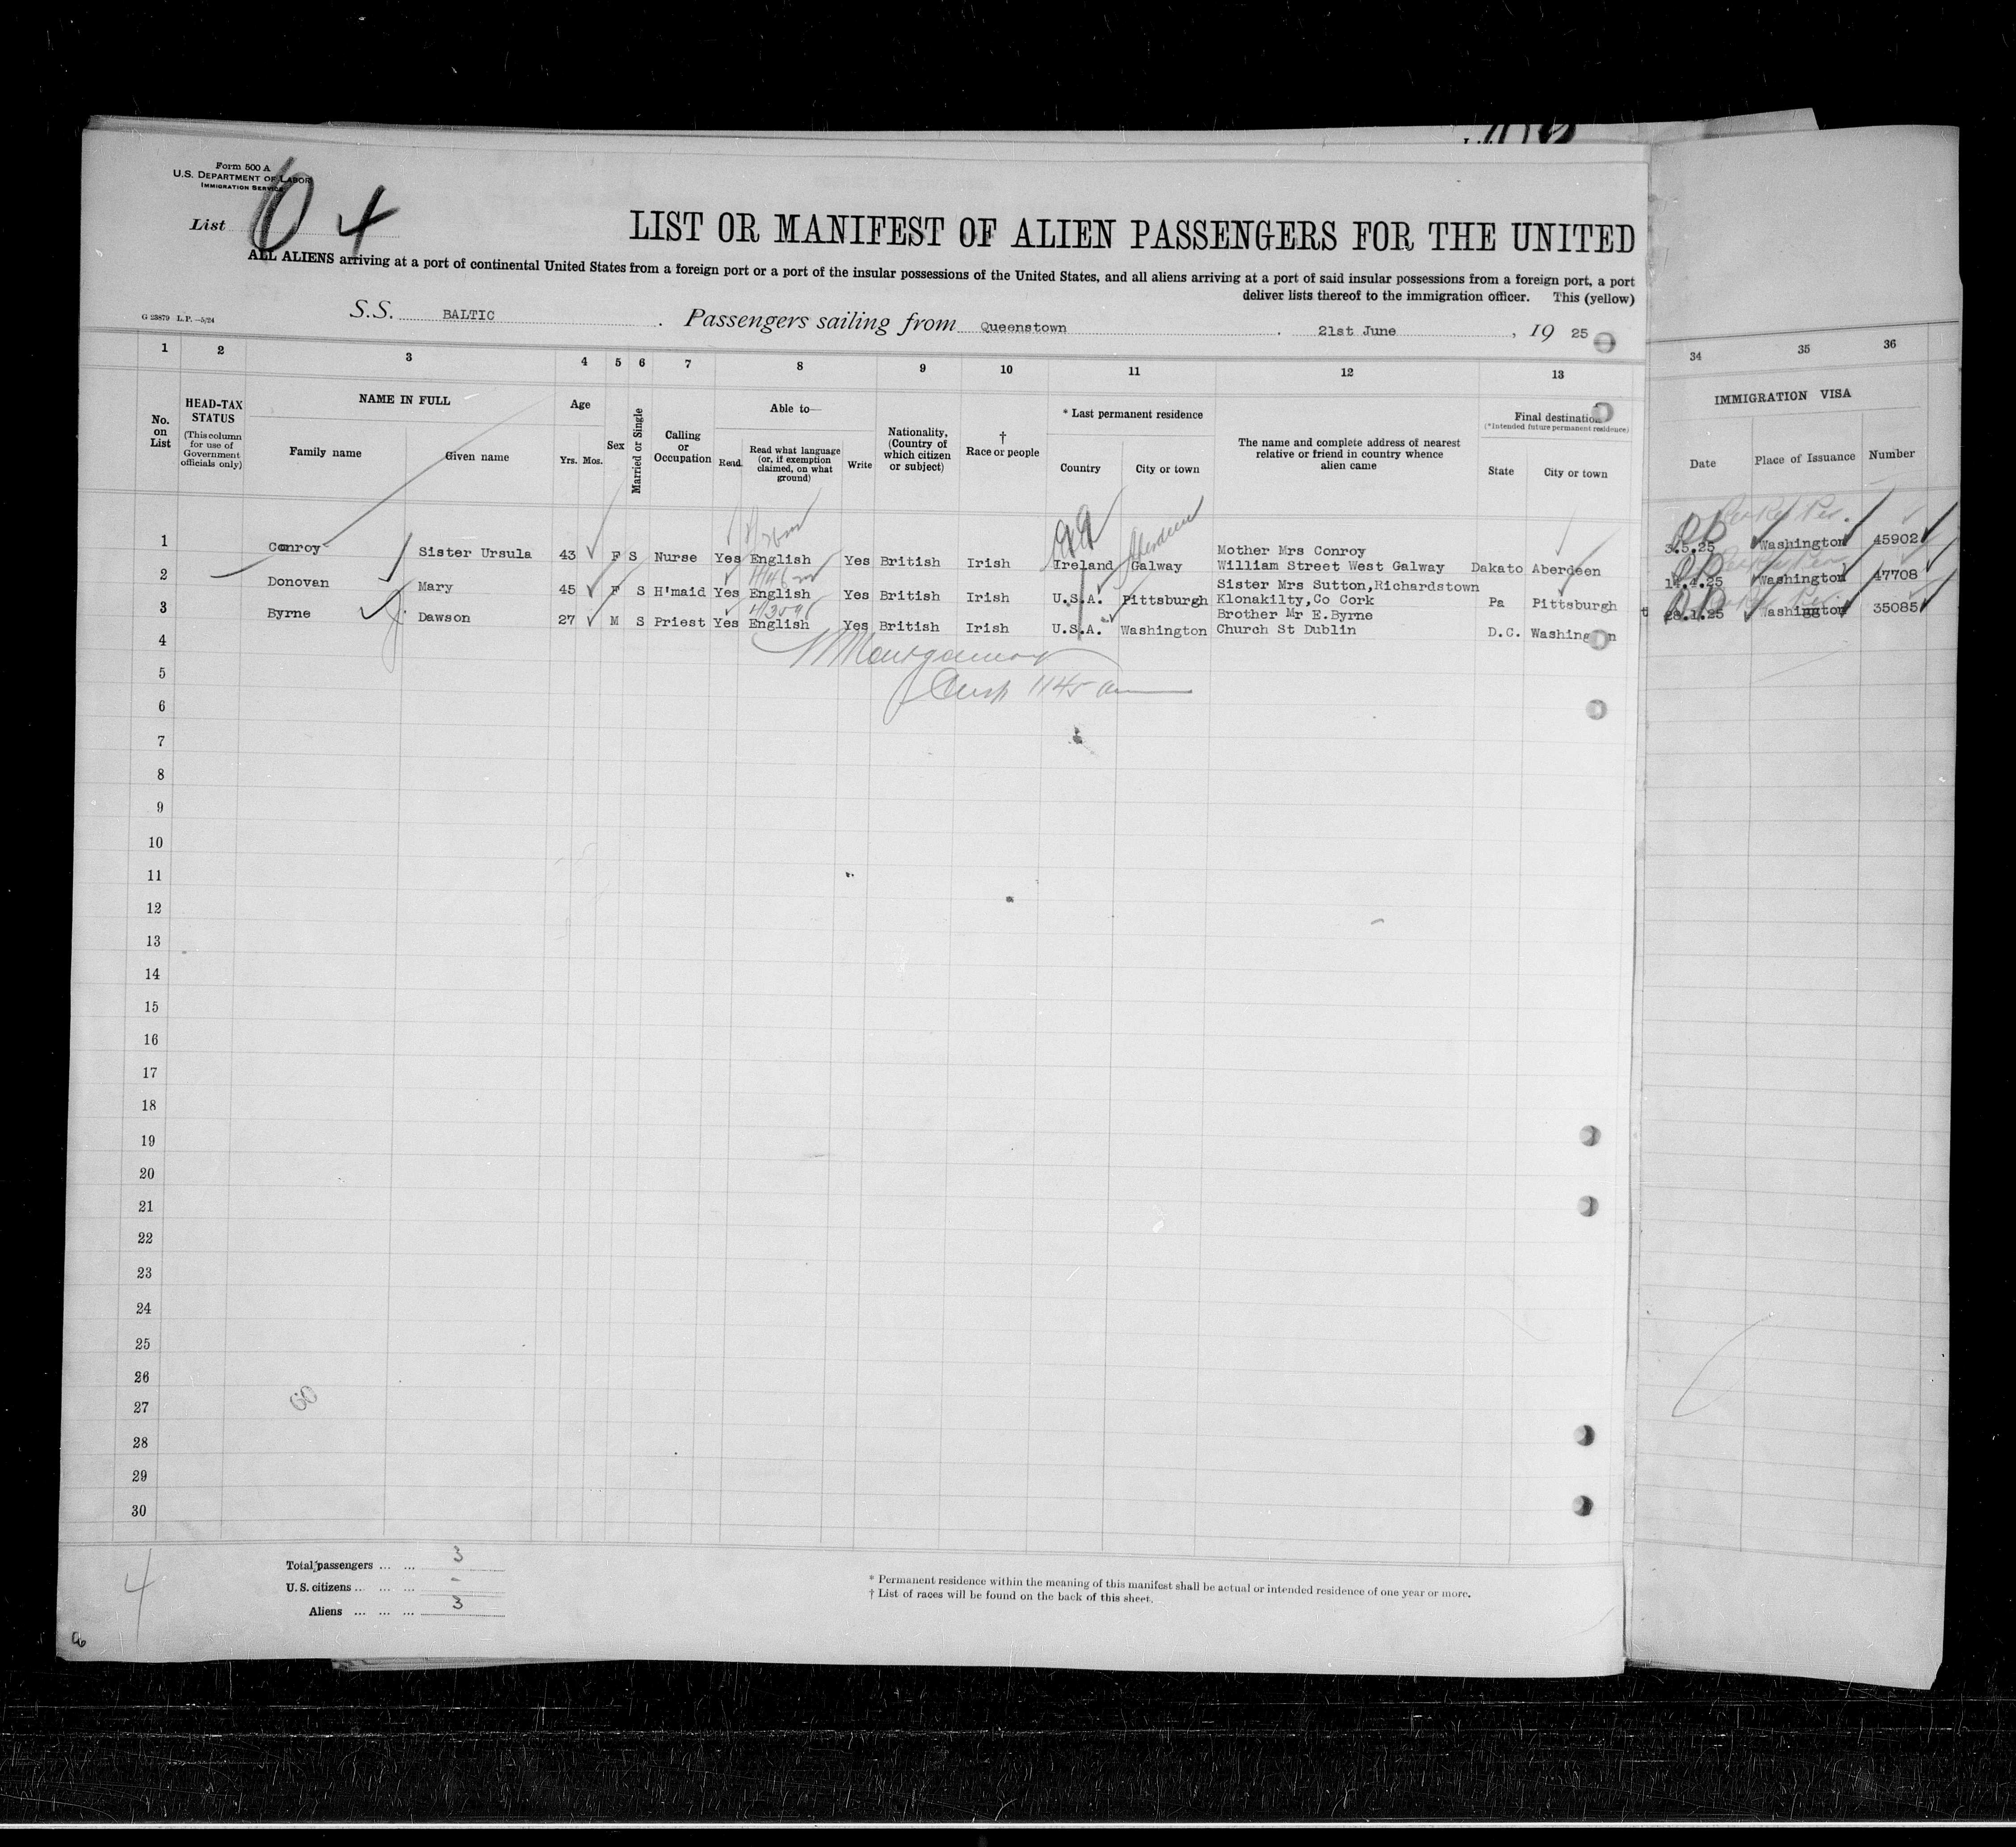 Form 500 A
U.S. DEPARTMENT OF LABOR
IMMIGRATION SERVICE
List 4
LIST OR MANIFEST OF ALIEN PASSENGERS FOR THE UNITED
ALL ALIENS arriving at a port of continental United States from a foreign port or a port of the insular possessions of the United States, and all aliens arriving at a port of said insular possessions from a foreign port, a port
deliver lists thereof to the immigration officer. This (yellow)
G 23879 L.P. —5/24
S.S. BALTIC . Passengers sailing from Queenstown . 21st June , 19 25
1 2 3 4 5 6 7 8 9 10 11 12 13 34 35 36
No. on List
HEAD-TAX STATUS
(This column for use of Government officials only)
NAME IN FULL
Family name
Given name
Age
Yrs. Mos.
Sex
Married or Single
Calling or Occupation
Able to—
Read
Read what language (or, if exemption claimed, on what ground)
Write
Nationality, (Country of which citizen or subject)
† Race or people
* Last permanent residence
Country
City or town
The name and complete address of nearest relative or friend in country whence alien came
Final destination
(*Intended future permanent residence)
State
City or town
IMMIGRATION VISA
Date
Place of Issuance
Number
1 Conroy Sister Ursula 43 F S Nurse Yes English Yes British Irish Ireland Galway Mother Mrs Conroy William Street West Galway Dakato Aberdeen 3.5.25 Washington 45902
Aberdeen
2 Donovan Mary 45 F S H'maid Yes English Yes British Irish U.S.A. Pittsburgh Sister Mrs Sutton,Richardstown Klonakilty,Co Cork Pa Pittsburgh 14.4.25 Washington 47708
3 Byrne J. Dawson 27 M S Priest Yes English Yes British Irish U.S.A. Washington Brother Mr E.Byrne Church St Dublin D.C. Washington 28.1.25 Washington 35085
Montgomery
1145 am
4
5
6
7
8
9
10
11
12
13
14
15
16
17
18
19
20
21
22
23
24
25
26
27
60
28
29
30
4
Total passengers ... ... 3
U.S. citizens ... ... ... -
Aliens ... ... ... 3
* Permanent residence within the meaning of this manifest shall be actual or intended residence of one year or more.
† List of races will be found on the back of this sheet.